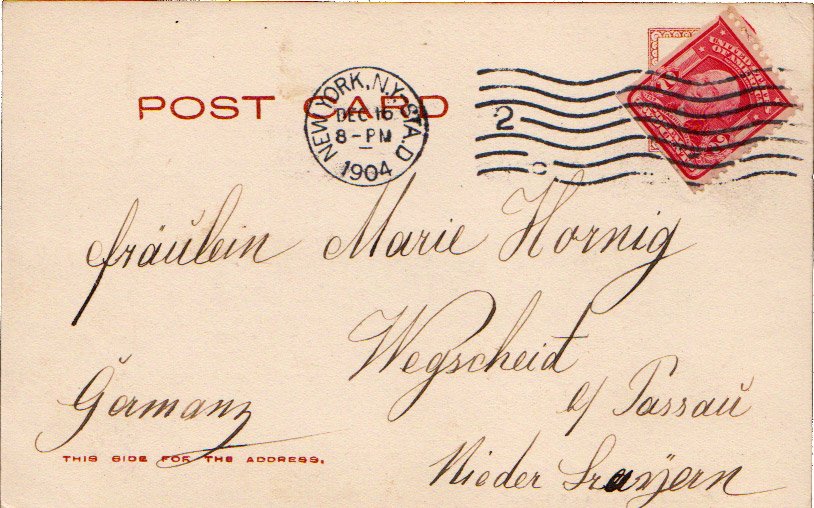 POST CARD
NEW YORK, N.Y. STA. D
DEC 16
8-PM
1904
2
C
UNITED STATES
OF AMERICA
2 2
Fräulein Marie Hornig
Wegscheid
b/ Passau
Germany
Nieder Bayern
THIS SIDE FOR THE ADDRESS.